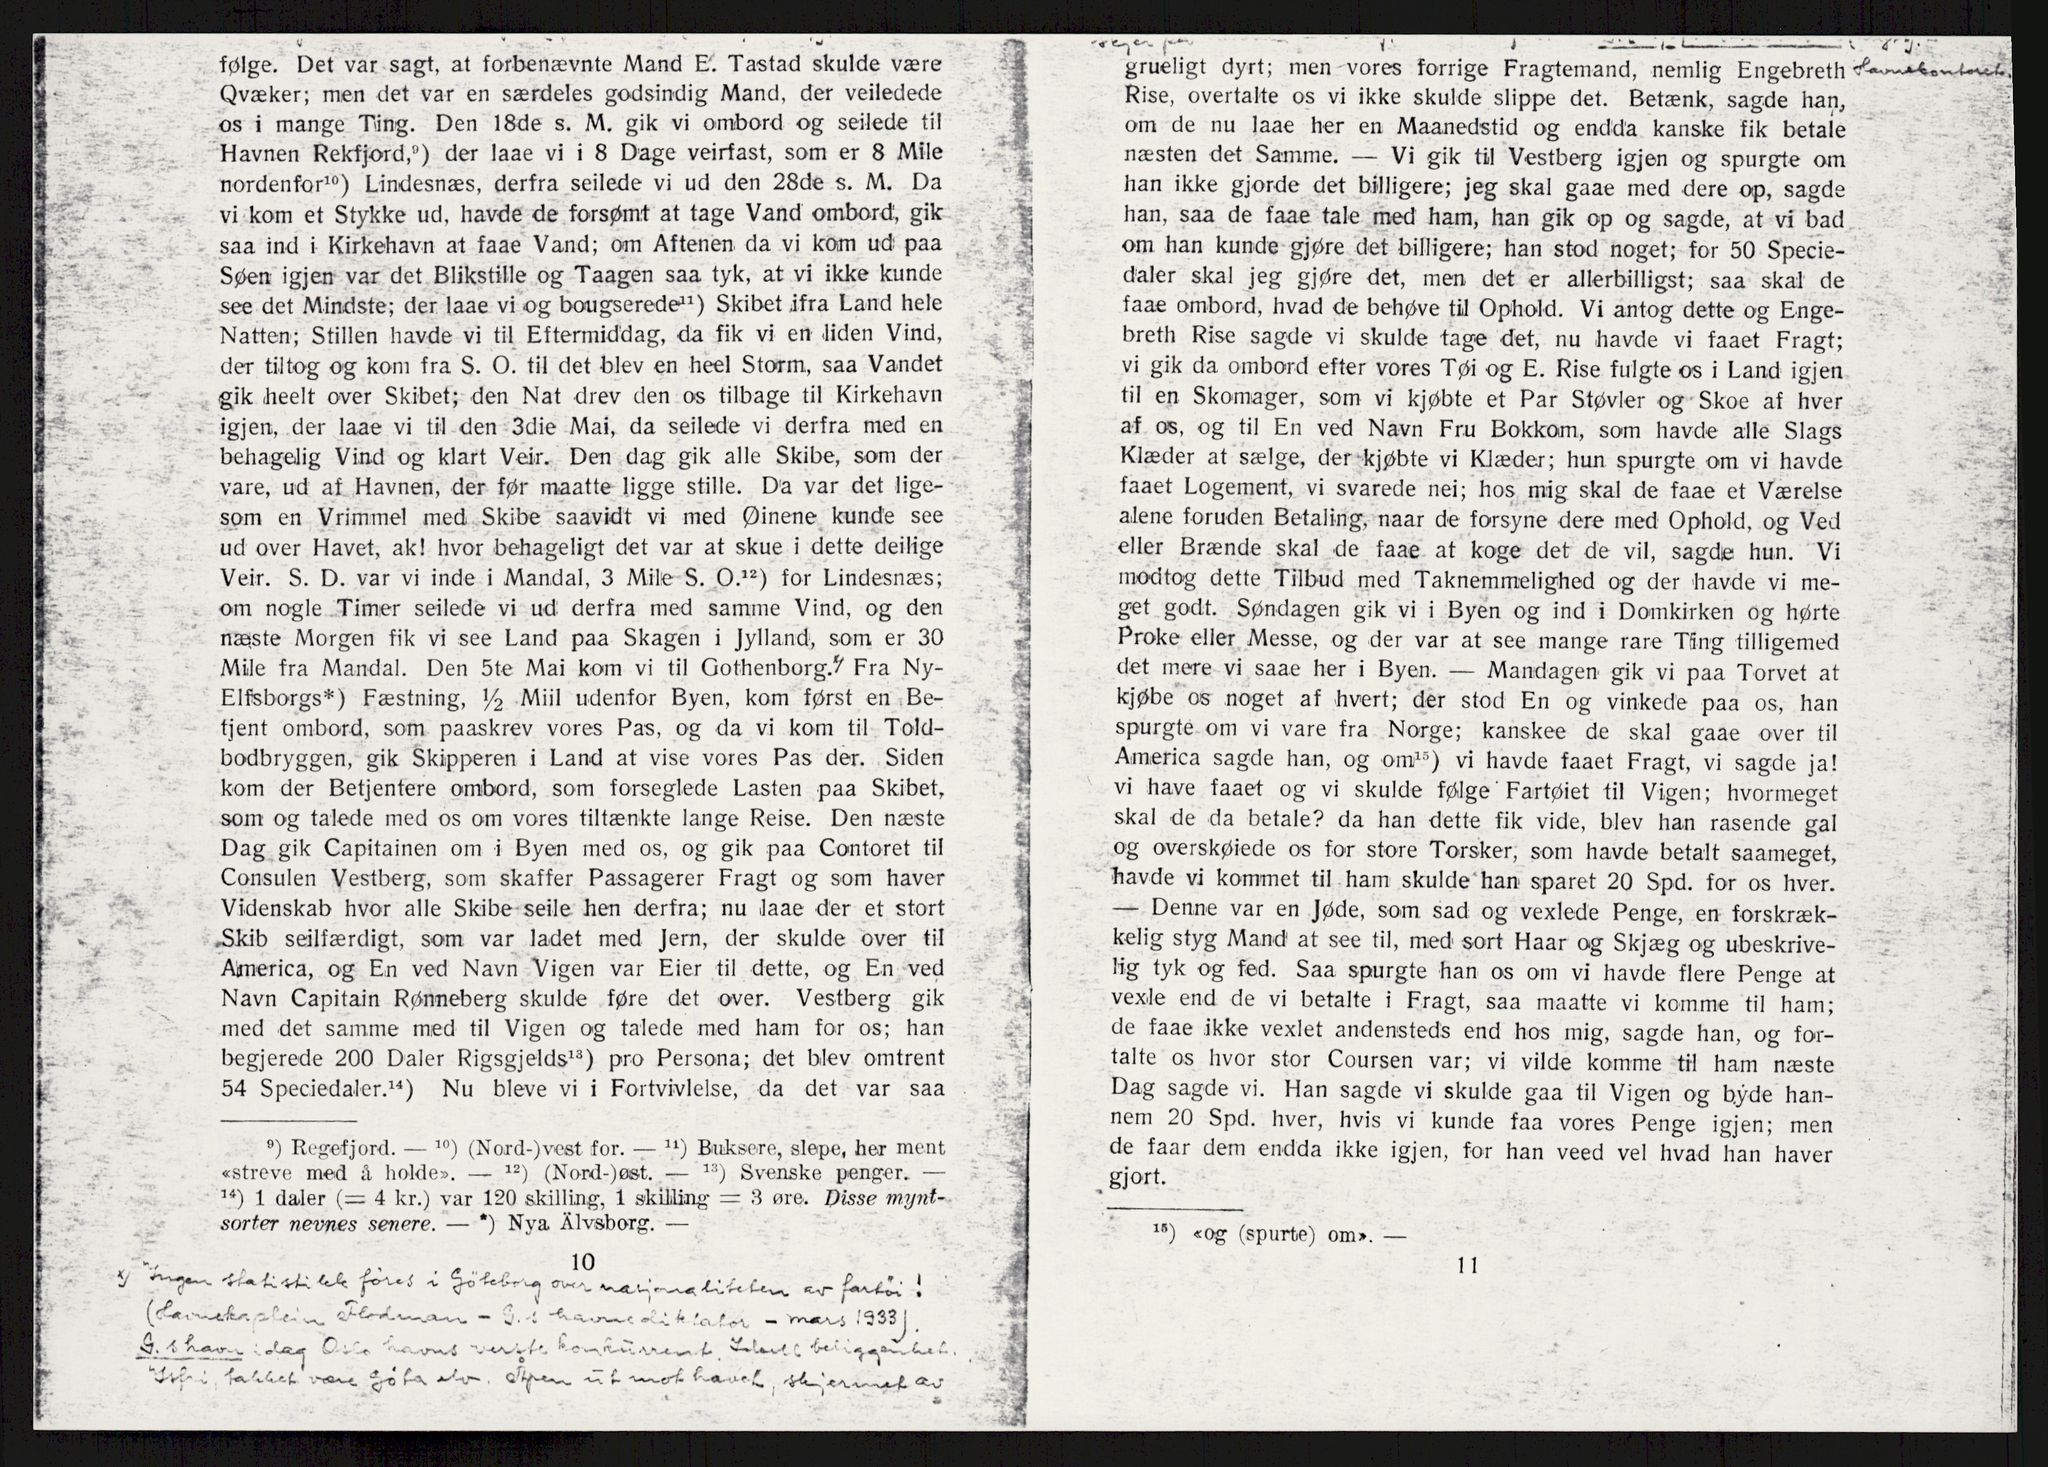 følge. Det var sagt, at forbenævnte Mand E. Tastad skulde være
Qvæker; men det var en særdeles godsindig Mand, der veiledede
os i mange Ting. Den 18de s. M. gik vi ombord og seilede til
Havnen Rekfjord,⁹) der laae vi i 8 Dage veirfast, som er 8 Mile
nordenfor¹⁰) Lindesnæs, derfra seilede vi ud den 28de s. M. Da
vi kom et Stykke ud, havde de forsømt at tage Vand ombord, gik
saa ind i Kirkehavn at faae Vand; om Aftenen da vi kom ud paa
Søen igjen var det Blikstille og Taagen saa tyk, at vi ikke kunde
see det Mindste; der laae vi og bougserede¹¹) Skibet ifra Land hele
Natten; Stillen havde vi til Eftermiddag, da fik vi en liden Vind,
der tiltog og kom fra S. O. til det blev en heel Storm, saa Vandet
gik heelt over Skibet; den Nat drev den os tilbage til Kirkehavn
igjen, der laae vi til den 3die Mai, da seilede vi derfra med en
behagelig Vind og klart Veir. Den dag gik alle Skibe, som der
vare, ud af Havnen, der før maatte ligge stille. Da var det lige-
som en Vrimmel med Skibe saavidt vi med Øinene kunde see
ud over Havet, ak! hvor behageligt det var at skue i dette deilige
Veir. S. D. var vi inde i Mandal, 3 Mile S. O.¹²) for Lindesnæs;
om nogle Timer seilede vi ud derfra med samme Vind, og den
næste Morgen fik vi see Land paa Skagen i Jylland, som er 30
Mile fra Mandal. Den 5te Mai kom vi til Gothenborg. Fra Ny-
Elfsborgs*) Fæstning, ½ Miil udenfor Byen, kom først en Be-
tjent ombord, som paaskrev vores Pas, og da vi kom til Told-
bodbryggen, gik Skipperen i Land at vise vores Pas der. Siden
kom der Betjentere ombord, som forseglede Lasten paa Skibet,
som og talede med os om vores tiltænkte lange Reise. Den næste
Dag gik Capitainen om i Byen med os, og gik paa Contoret til
Consulen Vestberg, som skaffer Passagerer Fragt og som haver
Videnskab hvor alle Skibe seile hen derfra; nu laae der et stort
Skib seilfærdigt, som var ladet med Jern, der skulde over til
America, og En ved Navn Vigen var Eier til dette, og En ved
Navn Capitain Rønneberg skulde føre det over. Vestberg gik
med det samme med til Vigen og talede med ham for os; han
begjerede 200 Daler Rigsgjelds¹³) pro Persona; det blev omtrent
54 Speciedaler.¹⁴) Nu bleve vi i Fortvivlelse, da det var saa
⁹) Regefjord. — ¹⁰) (Nord-)vest for. — ¹¹) Buksere, slepe, her ment
«streve med å holde». — ¹²) (Nord-)øst. — ¹³) Svenske penger. —
¹⁴) 1 daler (= 4 kr.) var 120 skilling, 1 skilling = 3 øre. Disse mynt-
sorter nevnes senere. — *) Nya Älvsborg. —
10
x) "Ingen statistikk føres i Göteborg over nasjonaliteten av fartöi!
(Havnekaptein Flodman – G.s havnediktator – mars 1933).
G.s havn idag Oslo havns verste konkurrent. Ideell beliggenhet.
"Isfri, takket være Göta elv. Åpen ut mot havet, skjermet av
grueligt dyrt; men vores forrige Fragtemand, nemlig Engebreth
Havnekontoret.
Rise, overtalte os vi ikke skulde slippe det. Betænk, sagde han,
om de nu laae her en Maanedstid og endda kanske fik betale
næsten det Samme. — Vi gik til Vestberg igjen og spurgte om
han ikke gjorde det billigere; jeg skal gaae med dere op, sagde
han, saa de faae tale med ham, han gik op og sagde, at vi bad
om han kunde gjøre det billigere; han stod noget; for 50 Specie-
daler skal jeg gjøre det, men det er allerbilligst; saa skal de
faae ombord, hvad de behøve til Ophold. Vi antog dette og Enge-
breth Rise sagde vi skulde tage det, nu havde vi faaet Fragt;
vi gik da ombord efter vores Tøi og E. Rise fulgte os i Land igjen
til en Skomager, som vi kjøbte et Par Støvler og Skoe af hver
af os, og til En ved Navn Fru Bokkom, som havde alle Slags
Klæder at sælge, der kjøbte vi Klæder; hun spurgte om vi havde
faaet Logement, vi svarede nei; hos mig skal de faae et Værelse
alene foruden Betaling, naar de forsyne dere med Ophold, og Ved
eller Brænde skal de faae at koge det de vil, sagde hun. Vi
modtog dette Tilbud med Taknemmelighed og der havde vi me-
get godt. Søndagen gik vi i Byen og ind i Domkirken og hørte
Proke eller Messe, og der var at see mange rare Ting tilligemed
det mere vi saae her i Byen. — Mandagen gik vi paa Torvet at
kjøbe os noget af hvert; der stod En og vinkede paa os, han
spurgte om vi vare fra Norge; kanskee de skal gaae over til
America sagde han, og om¹⁵) vi havde faaet Fragt, vi sagde ja!
vi have faaet og vi skulde følge Fartøiet til Vigen; hvormeget
skal de da betale? da han dette fik vide, blev han rasende gal
og overskøiede os for store Torsker, som havde betalt saameget,
havde vi kommet til ham skulde han sparet 20 Spd. for os hver.
— Denne var en Jøde, som sad og vexlede Penge, en forskræk-
kelig styg Mand at see til, med sort Haar og Skjæg og ubeskrive-
lig tyk og fed. Saa spurgte han os om vi havde flere Penge at
vexle end de vi betalte i Fragt, saa maatte vi komme til ham;
de faae ikke vexlet andensteds end hos mig, sagde han, og for-
talte os hvor stor Coursen var; vi vilde komme til ham næste
Dag sagde vi. Han sagde vi skulde gaa til Vigen og byde han-
nem 20 Spd. hver, hvis vi kunde faa vores Penge igjen; men
de faar dem endda ikke igjen, for han veed vel hvad han haver
gjort.
¹⁵) «og (spurte) om». —
11